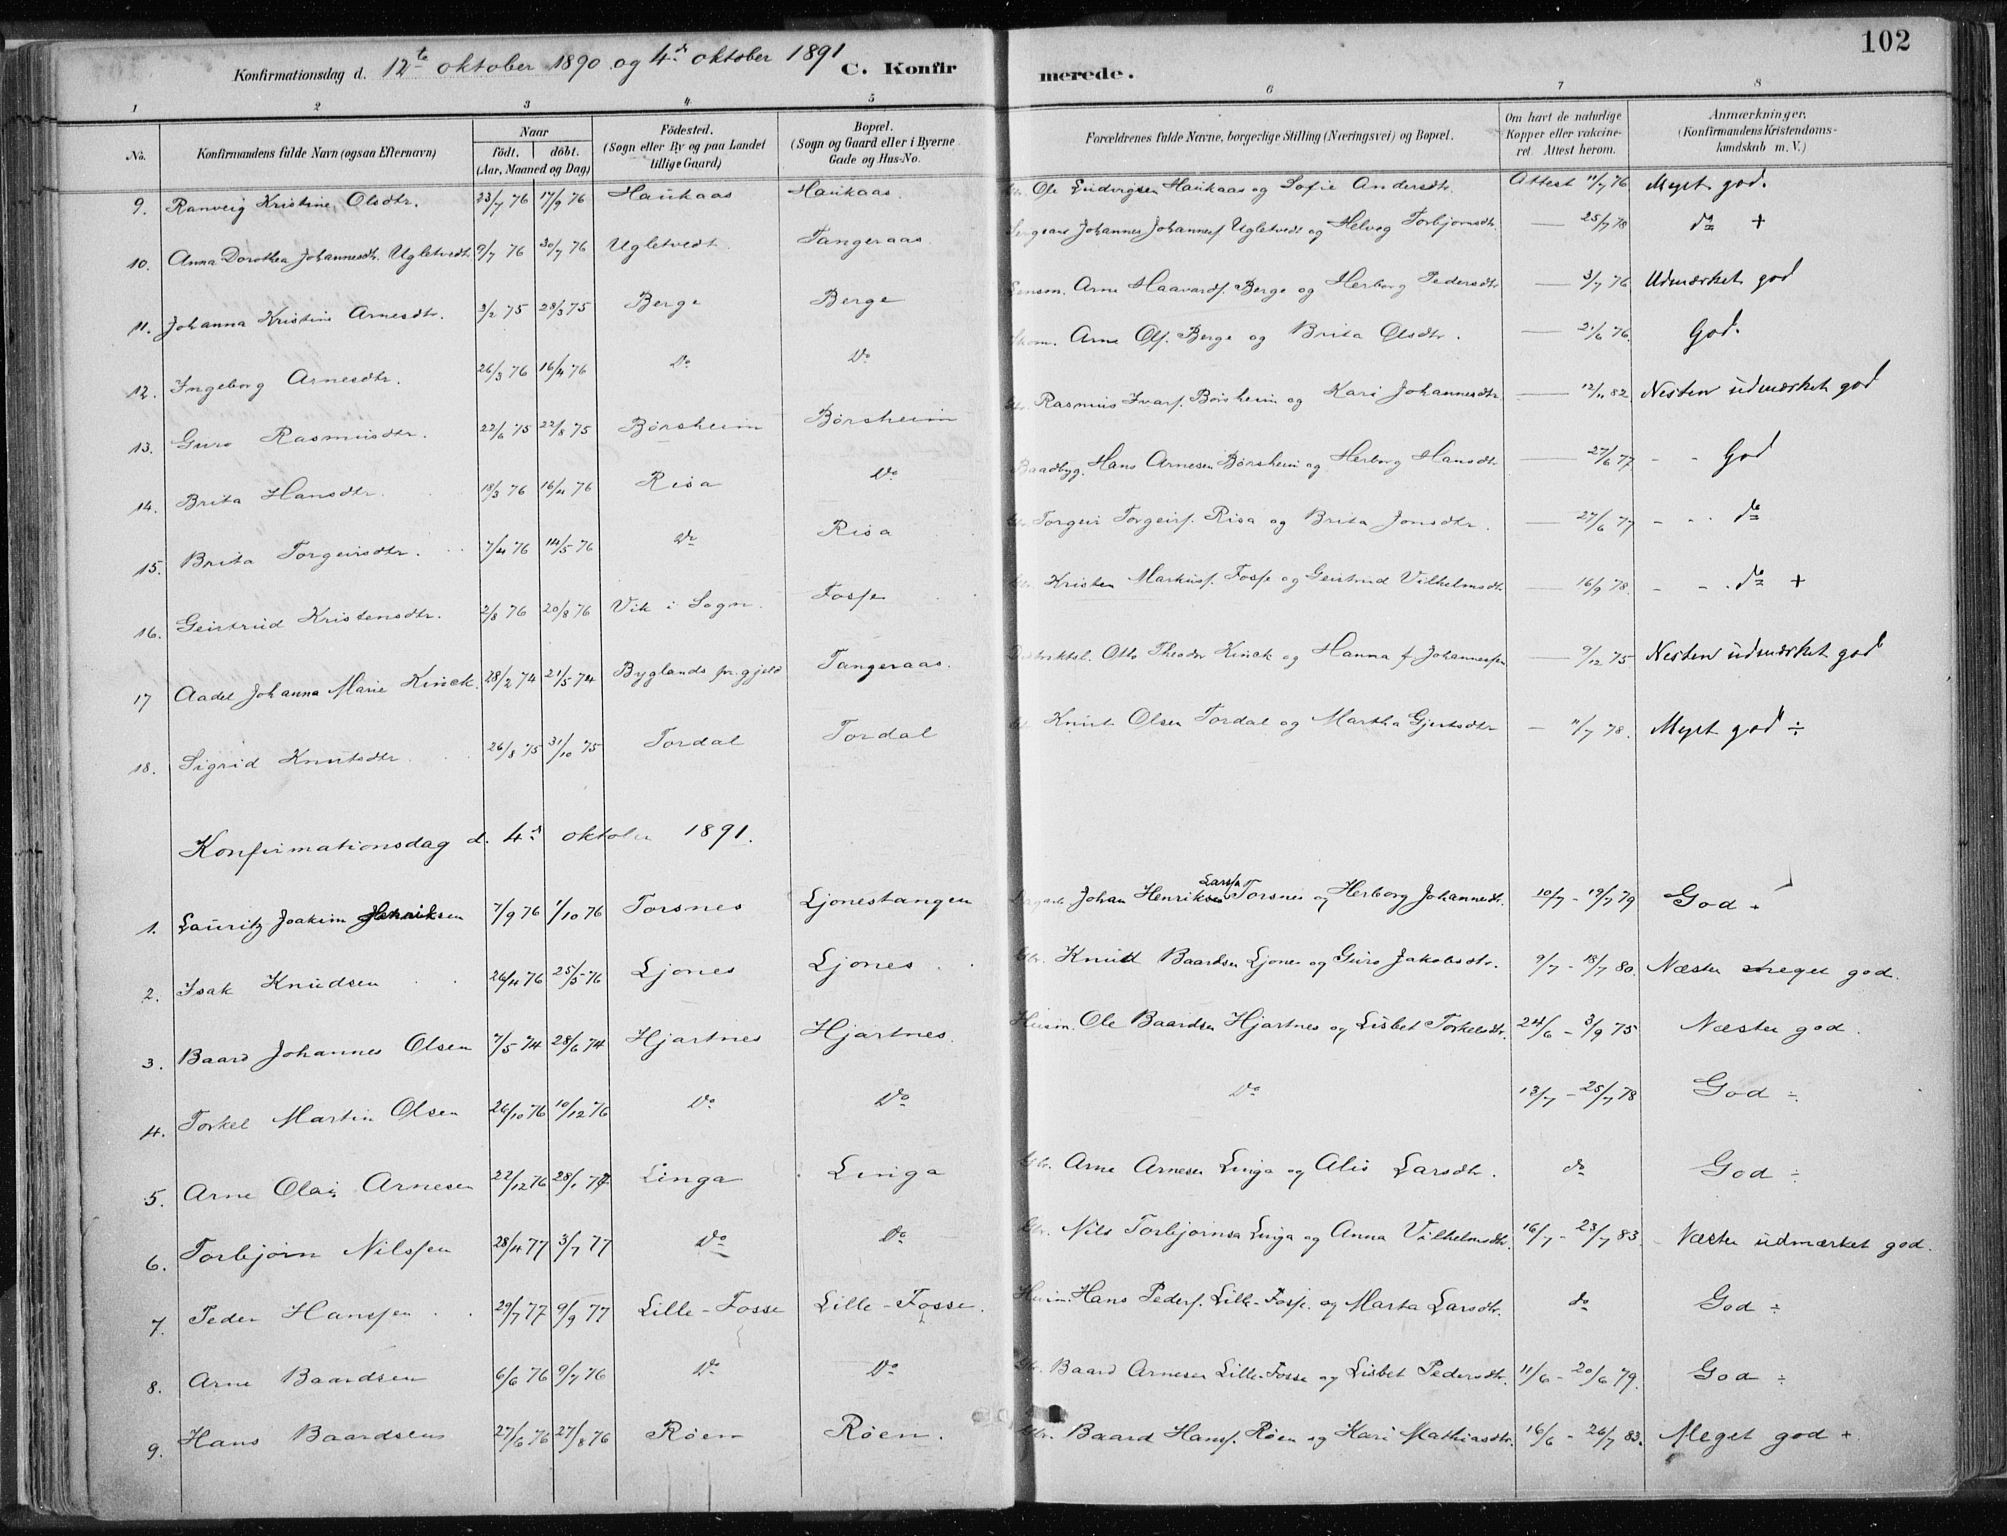 102
Konfirmationsdag d. 12te oktober 1890 og 4de oktober 1891 C. Konfirmerede.
1 2 3 4 5 6 7 8
No. Konfirmandens fulde Navn (ogsaa Efternavn) Naar födt. döbt. (Aar, Maaned og Dag) Födested. (Sogn eller By og paa Landet tillige Gaard) Bopæl. (Sogn og Gaard eller i Byerne Gade og Hus-No. Forældrenes fulde Navne, borgerlige Stilling (Næringsvei) og Bopæl. Om havt de naturlige Kopper eller vakcineret. Attest herom. Anmærkninger, (Konfirmandens Kristendomskundskab m. V.)
9. Ranveig Kristine Olsdtr. 23/7 76 17/9 76 Haukaas Haukaas Ole Ludvigsen Haukaas og Sofie Andersdtr. Attest 11/7 76 Myet god.
10. Anna Dorothea Johannesdtr. Ugletvedt 9/7 76 30/7 76 Ugletvedt Tangeraas Johannes Johannesf. Ugletvedt og Helvog Torbjørnsdtr. — 25/7 78 do +
11. Johanna Kristine Arnesdtr. 2/2 75 28/3 75 Berge Berge Lensm. Arne Haavardf. Berge og Herborg Pedersdtr — 3/7 76 Udmærket god
12. Ingeborg Arnesdtr. 26/3 76 16/4 76 Do Do Arne Olf. Berge og Brita Olsdtr. — 21/6 76. God.
13. Guro Rasmusdtr. 22/6 75 22/8 75 Børsheim Børsheim Rasmus Ivarf. Børsheim og Kari Johannesdtr — 12/11 82 Nesten udmærket god
14. Brita Hansdtr. 18/3 76 16/4 76 Risa Do Baadbyg. Hans Arnesen Børsheim og Herborg Hansdtr — 27/6 77 - - God
15. Brita Torgeirsdtr. 7/4 76 14/5 76 Do Risa Torgeir Torgeirf. Risa og Brita Jonsdtr. — 27/6 77 - - do
16. Geirtrud Kristensdtr. 2/8 76 20/8 76 Vik i Sogn. Fosse Kristen Markusf. Fosse og Geirtrud Vilhelmsdtr — 16/9 78. - - do +
17 Aadel Johanna Marie Kinck. 28/2 74 21/5 74 Byglands pr.gjeld Tangeraas. Distriktsl. Otto Theodor Kinck og Hanna f. Johannessen — 9/12 75 Nesten udmærket god
18. Sigrid Knutsdtr. 26/8 75 31/10 75 Tordal Tordal Knut Olsen Tordal og Martha Gjertsdtr — 11/7 78. Myet god ÷
Konfirmationsdag d. 4de oktober 1891.
1. Lauritz Joakim Henriksen 7/9 76 1/10 76 Torsnes Ljonestangen Johan Henriksen Larssøn Torsnes og Herborg Johannesdtr. 10/7 - 19/7 79 God +
2. Isak Knudsen 26/4 76 25/5 76 Ljones Ljones Gbr. Knud Baardsen Ljones og Guro Jakobsdtr. 9/7 - 18/7 80. Næsten meget god.
3. Baard Johannes Olsen 7/5 74 28/6 74 Hjartnes Hjartnes. Husm. Ole Baardsen Hjartnes og Lisbet Torkelsdtr. 24/6 - 3/9 75 Næsten god.
4. Torkel Martin Olsen 26/10 76 10/12 76 Do Do Do 13/7 - 25/7 78 God ÷
5. Arne Olai Arnesen 22/12 76 28/1 77 Linga Linga Gbr. Arne Arnesen Linga og Alis Larsdtr. do God ÷
6. Torbjørn Nilssen 28/4 77 3/7 77 Do Do Gbr. Nils Torbjørnsen Linga og Anna Vilhelmsdtr. 16/7 - 23/7 83. Næsten udmærket god.
7. Peder Hanssen 29/7 77 9/9 77 Lille-Fosse Lille-Fosse. Husm. Hans Pederf. Lille-Fosse og Marta Larsdtr. do God ÷
8. Arne Baardsen 6/6 76 9/7 76 Do Do Gbr. Baard Arnesen Lille-Fosse og Lisbet Pedersdtr. 11/6 - 20/6 79. God ÷
9. Hans Baardsen 27/6 76 27/8 76 Røen Røen. Gbr. Baard Hansf. Røen og Kari Mathiasdtr. 16/6 - 26/7 83. Meget god +